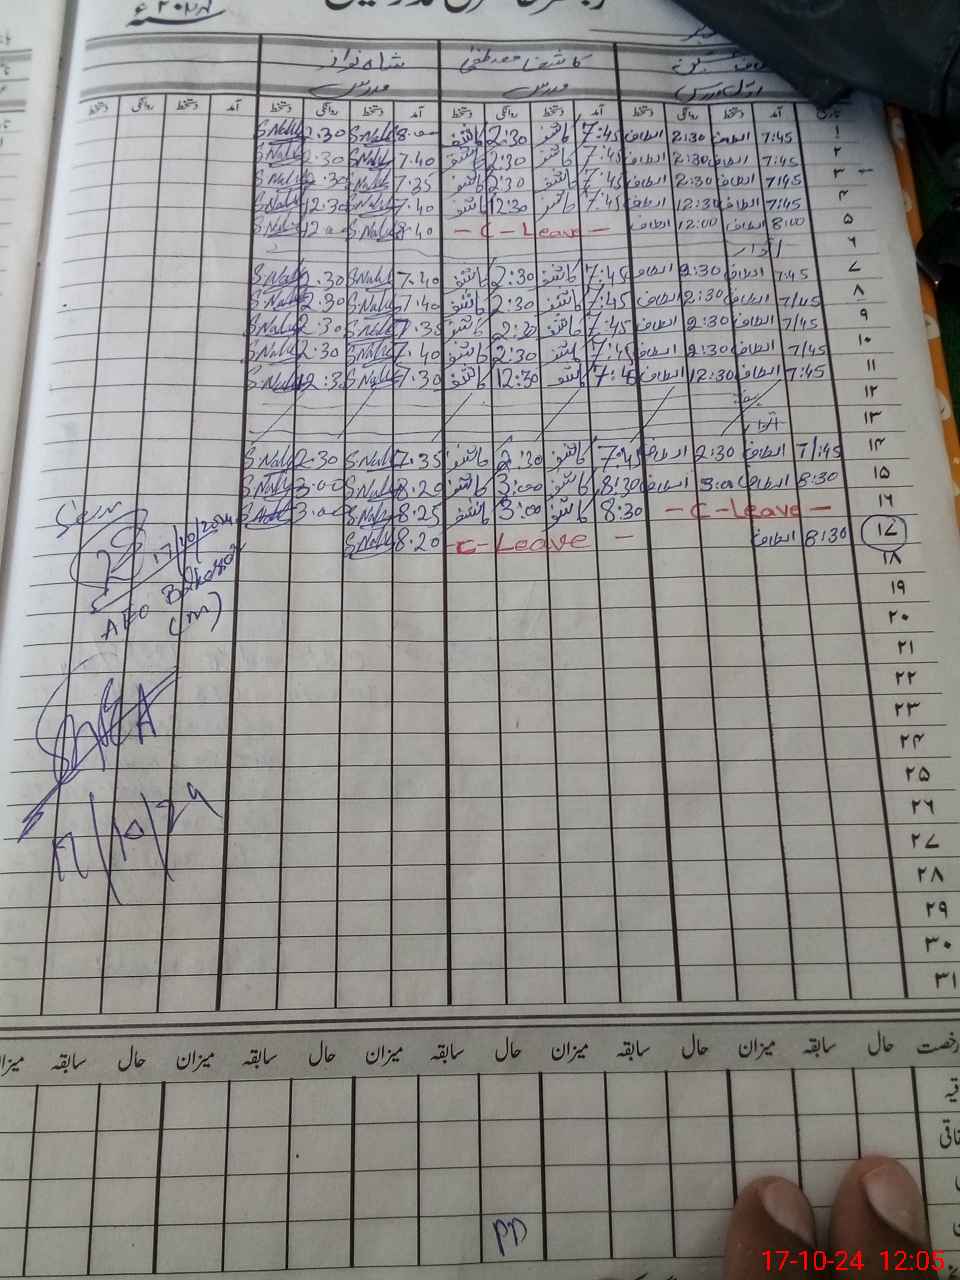 شاہ نواز کاشف مصطفیٰ
مدرس مدرس
تاریخ آمد دستخط روانگی دستخط آمد دستخط روانگی دستخط آمد دستخط روانگی دستخط آمد دستخط روانگی دستخط
۱ 7:45 الطاف 2:30 الطاف 7:45 کاشف 2:30 کاشف 8.00 2.30
۲ 7:45 الطاف 2:30 الطاف 7:45 کاشف 2:30 کاشف 7.40 2.30
۳ 7:45 الطاف 2:30 الطاف 7:45 کاشف 2:30 کاشف 7.35 2.30
۴ 7:45 الطاف 12:30 الطاف 7:45 کاشف 12:30 کاشف 7.40 12.30
۵ 8:00 الطاف 12:00 الطاف - C - Leave - 8.40
۶ اتوار
۷ 7:45 الطاف 2:30 الطاف 7:45 کاشف 2:30 کاشف 7.40 2.30
۸ 7/45 الطاف 2:30 الطاف 7:45 کاشف 2:30 کاشف 7.40 2.30
۹ 7/45 الطاف 2:30 الطاف 7:45 کاشف 2:30 کاشف 7.35 2.30
۱۰ 7/45 الطاف 2:30 الطاف 7:45 کاشف 2:30 کاشف 7.40 2.30
۱۱ 7:45 الطاف 12:30 الطاف 7:45 کاشف 12:30 کاشف 7.30
۱۲ ہفتہ
۱۳ اتوار
۱۴ 7/:45 الطاف 2:30 الطاف 7:45 کاشف 2:30 کاشف 7.35 2.30
۱۵ 8:30 الطاف 3:00 الطاف 8:30 کاشف 3:00 کاشف 8.20 3.00
۱۶ - C - Leave - 8:30 کاشف 3:00 کاشف 8.25 3.00
۱۷ 8:30 الطاف C - Leave - 8.20
۱۸
۱۹
۲۰
۲۱
۲۲
۲۳
۲۴
۲۵
۲۶
۲۷
۲۸
۲۹
۳۰
۳۱
Seen
17/10/2024
AEO
(m)
17/10/24
رخصت حال سابقہ میزان حال سابقہ میزان حال سابقہ میزان حال سابقہ میزان حال سابقہ میزان
PD
17-10-24 12:05